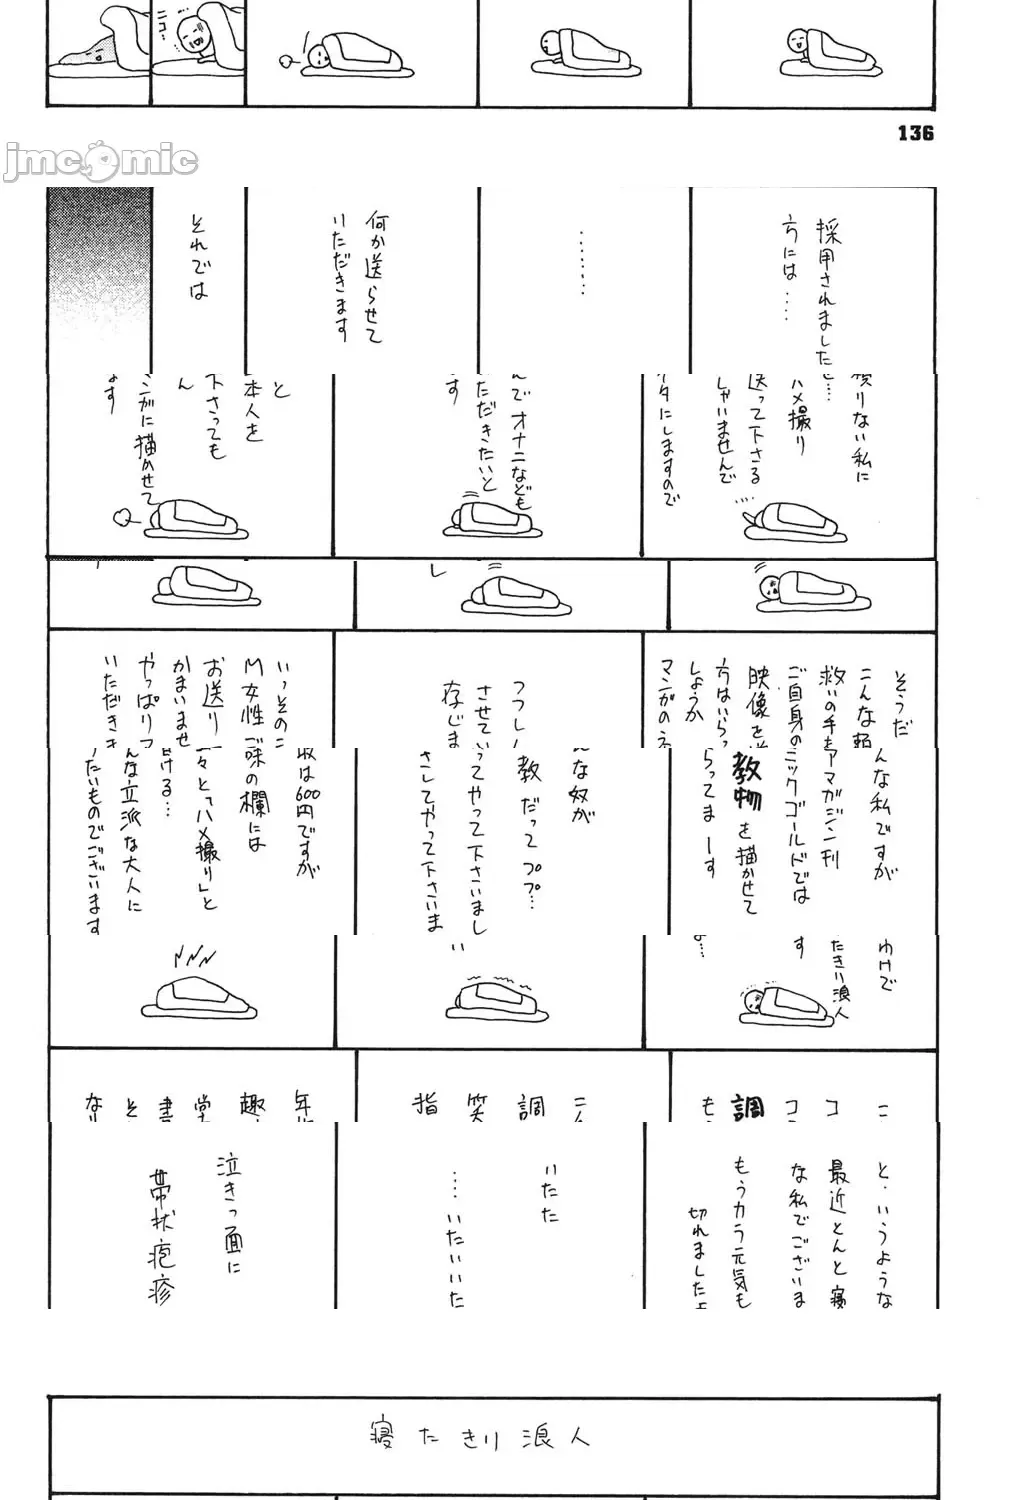 ニコ…
136
jmcomic
採用されました
方には‥‥
‥‥‥‥
何か送らせて
いただきます
それでは
頼りない私に
ハメ撮り
送って下さる
しゃいませんで
タにしますので
んでオナニなども
ただきたいと
す
と
本人を
下さっても
ん
ンガに描かせて
ます
そうだ
こんな頼
救いの手を
ご自身の
映像を送
方はいらっ
しょうか
マンガのネ
つつしん
させてい
存じま
いっそのこ
M女性
お送り
かまいませ
やっぱりマ
いただきま
んな私ですが
アマガジン刊
ミックゴールドでは
教物を描かせて
らってまーす
んな奴が
教だってププ…
ってやって下さいまし
さしてやって下さいま
い
取は600円ですが
ご味の欄には
々と「ハメ撮り」と
ける…
んな立派な大人に
たいものでございます
わけで
たきり浪人
す
よ…
こ
コ
コ
調
も
こん
調
笑
指
年収
趣
堂
書
そ
なり
と、いうような
最近とんと寝
な私でございま
もうカラ元気も
切れましたよ
いたた
‥‥いたいいた
泣きっ面に
帯状疱疹
寝たきり浪人